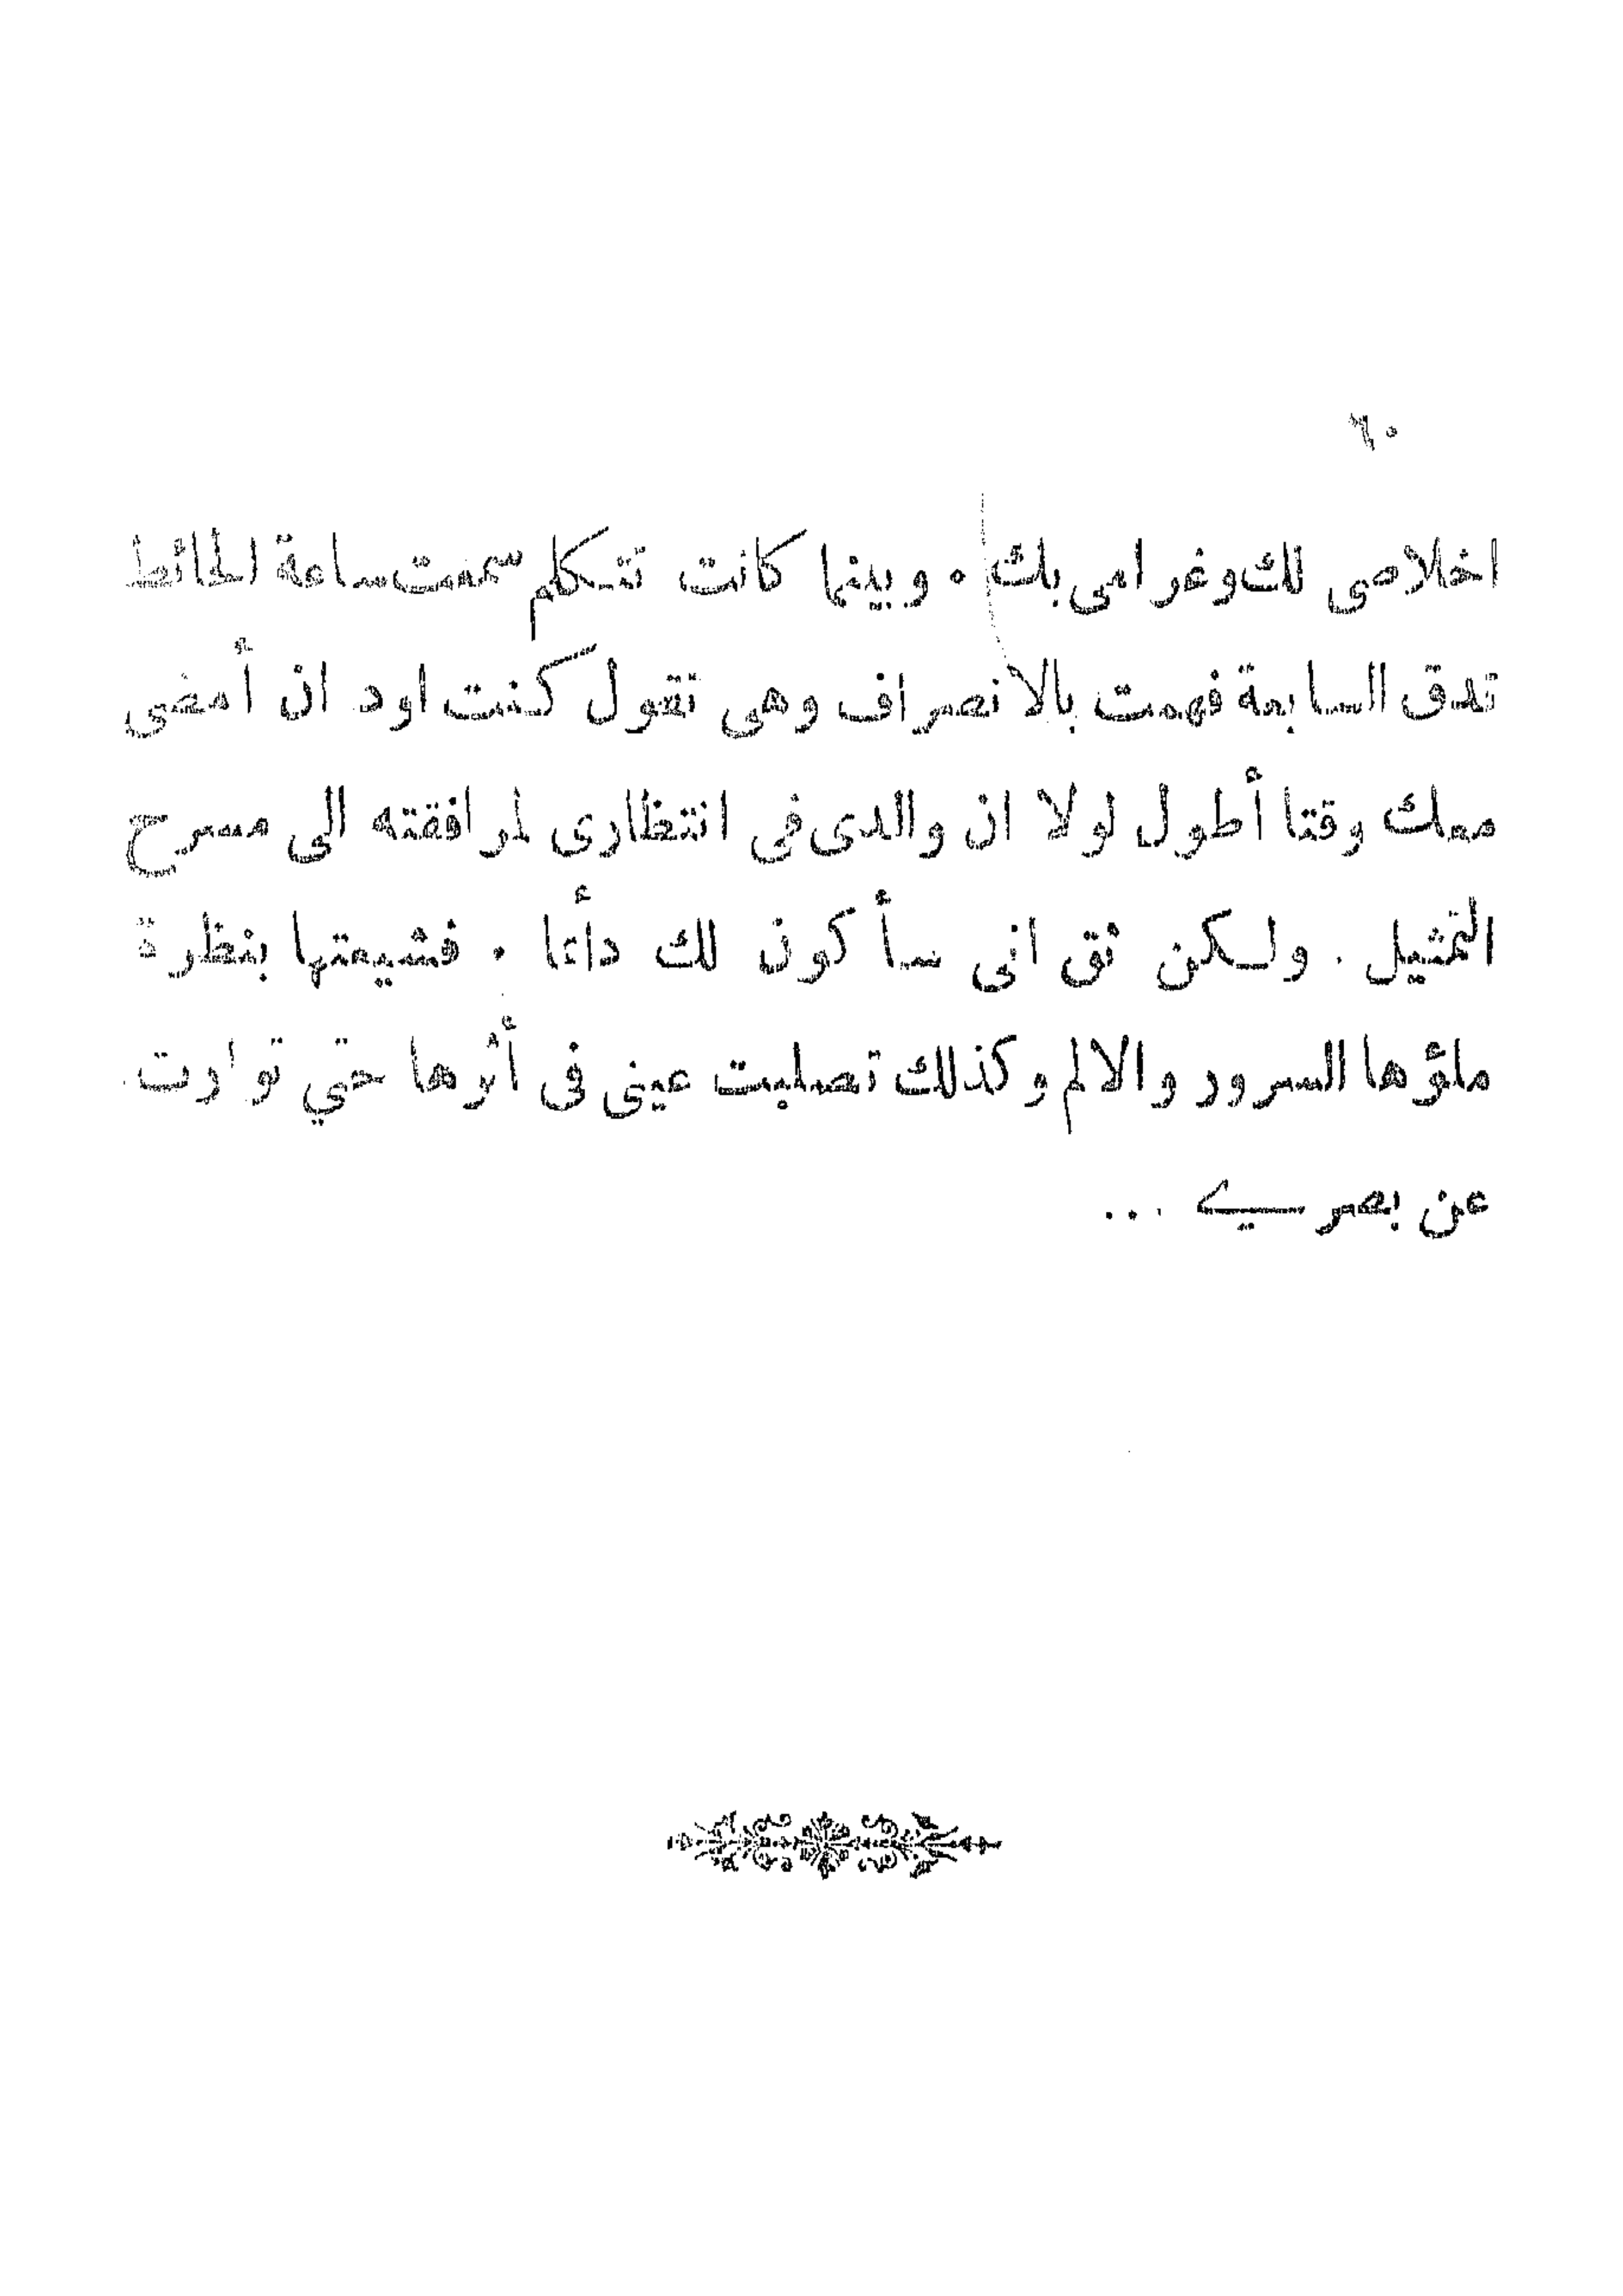 ٦٠
اخلاصى لك وغرامى بك . وبينما كانت تتكلم سمعت ساعة الحائط
تدق السابعة فهمت بالانصراف وهى تقول كنت اود ان أمضى
معك وقتا أطول لولا ان والدى فى انتظارى لمرافقته الى مسرح
التمثيل . ولكن ثق انى سأكون لك دائما . فشيعتها بنظرة
ملؤها السرور والالم وكذلك تصلبت عينى فى أثرها حتي توارت
عن بصري ...